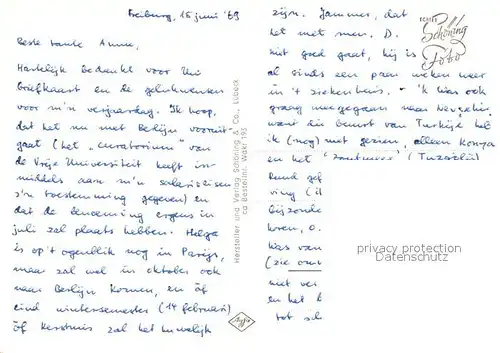 Freiburg, 15 juni '69
Beste tante Anna,
Hartelijk bedankt voor Uw
briefkaart en de gelukwensen
voor m'n verjaardag. Ik hoop,
dat het nu met Berlijn vooruit
gaat (het "curatorium" van
de Vrije Universiteit heeft in-
middels aan m'n salariseisen
z'n toestemming gegeven) en
dat de benoeming ergens in
juli zal plaats hebben. Helga
is op 't ogenblik nog in Parijs,
maar zal wel in oktober ook
naar Berlijn komen, en óf
eind wintersemester (14 februari)
óf Kerstmis zal het huwelijk
zijn. Jammer, dat
het met mevr. D.
niet goed gaat, hij is
al sinds een paar weken weer
in 't ziekenhuis. - 'k Was ook
graag meegegaan naar
want die beurt van Turkije heb
ik (nog) niet gezien, alleen Konya
en het
Rund
ving
bijzonde
koren, o.
Was van
(zie
niet ver
en het
tot
ECHTE
Schöning
Foto
Hersteller und Verlag Schöning & Co., Lübeck
ca Bestellnr. Wakr 193
Agfa
privacy protection
Datenschutz